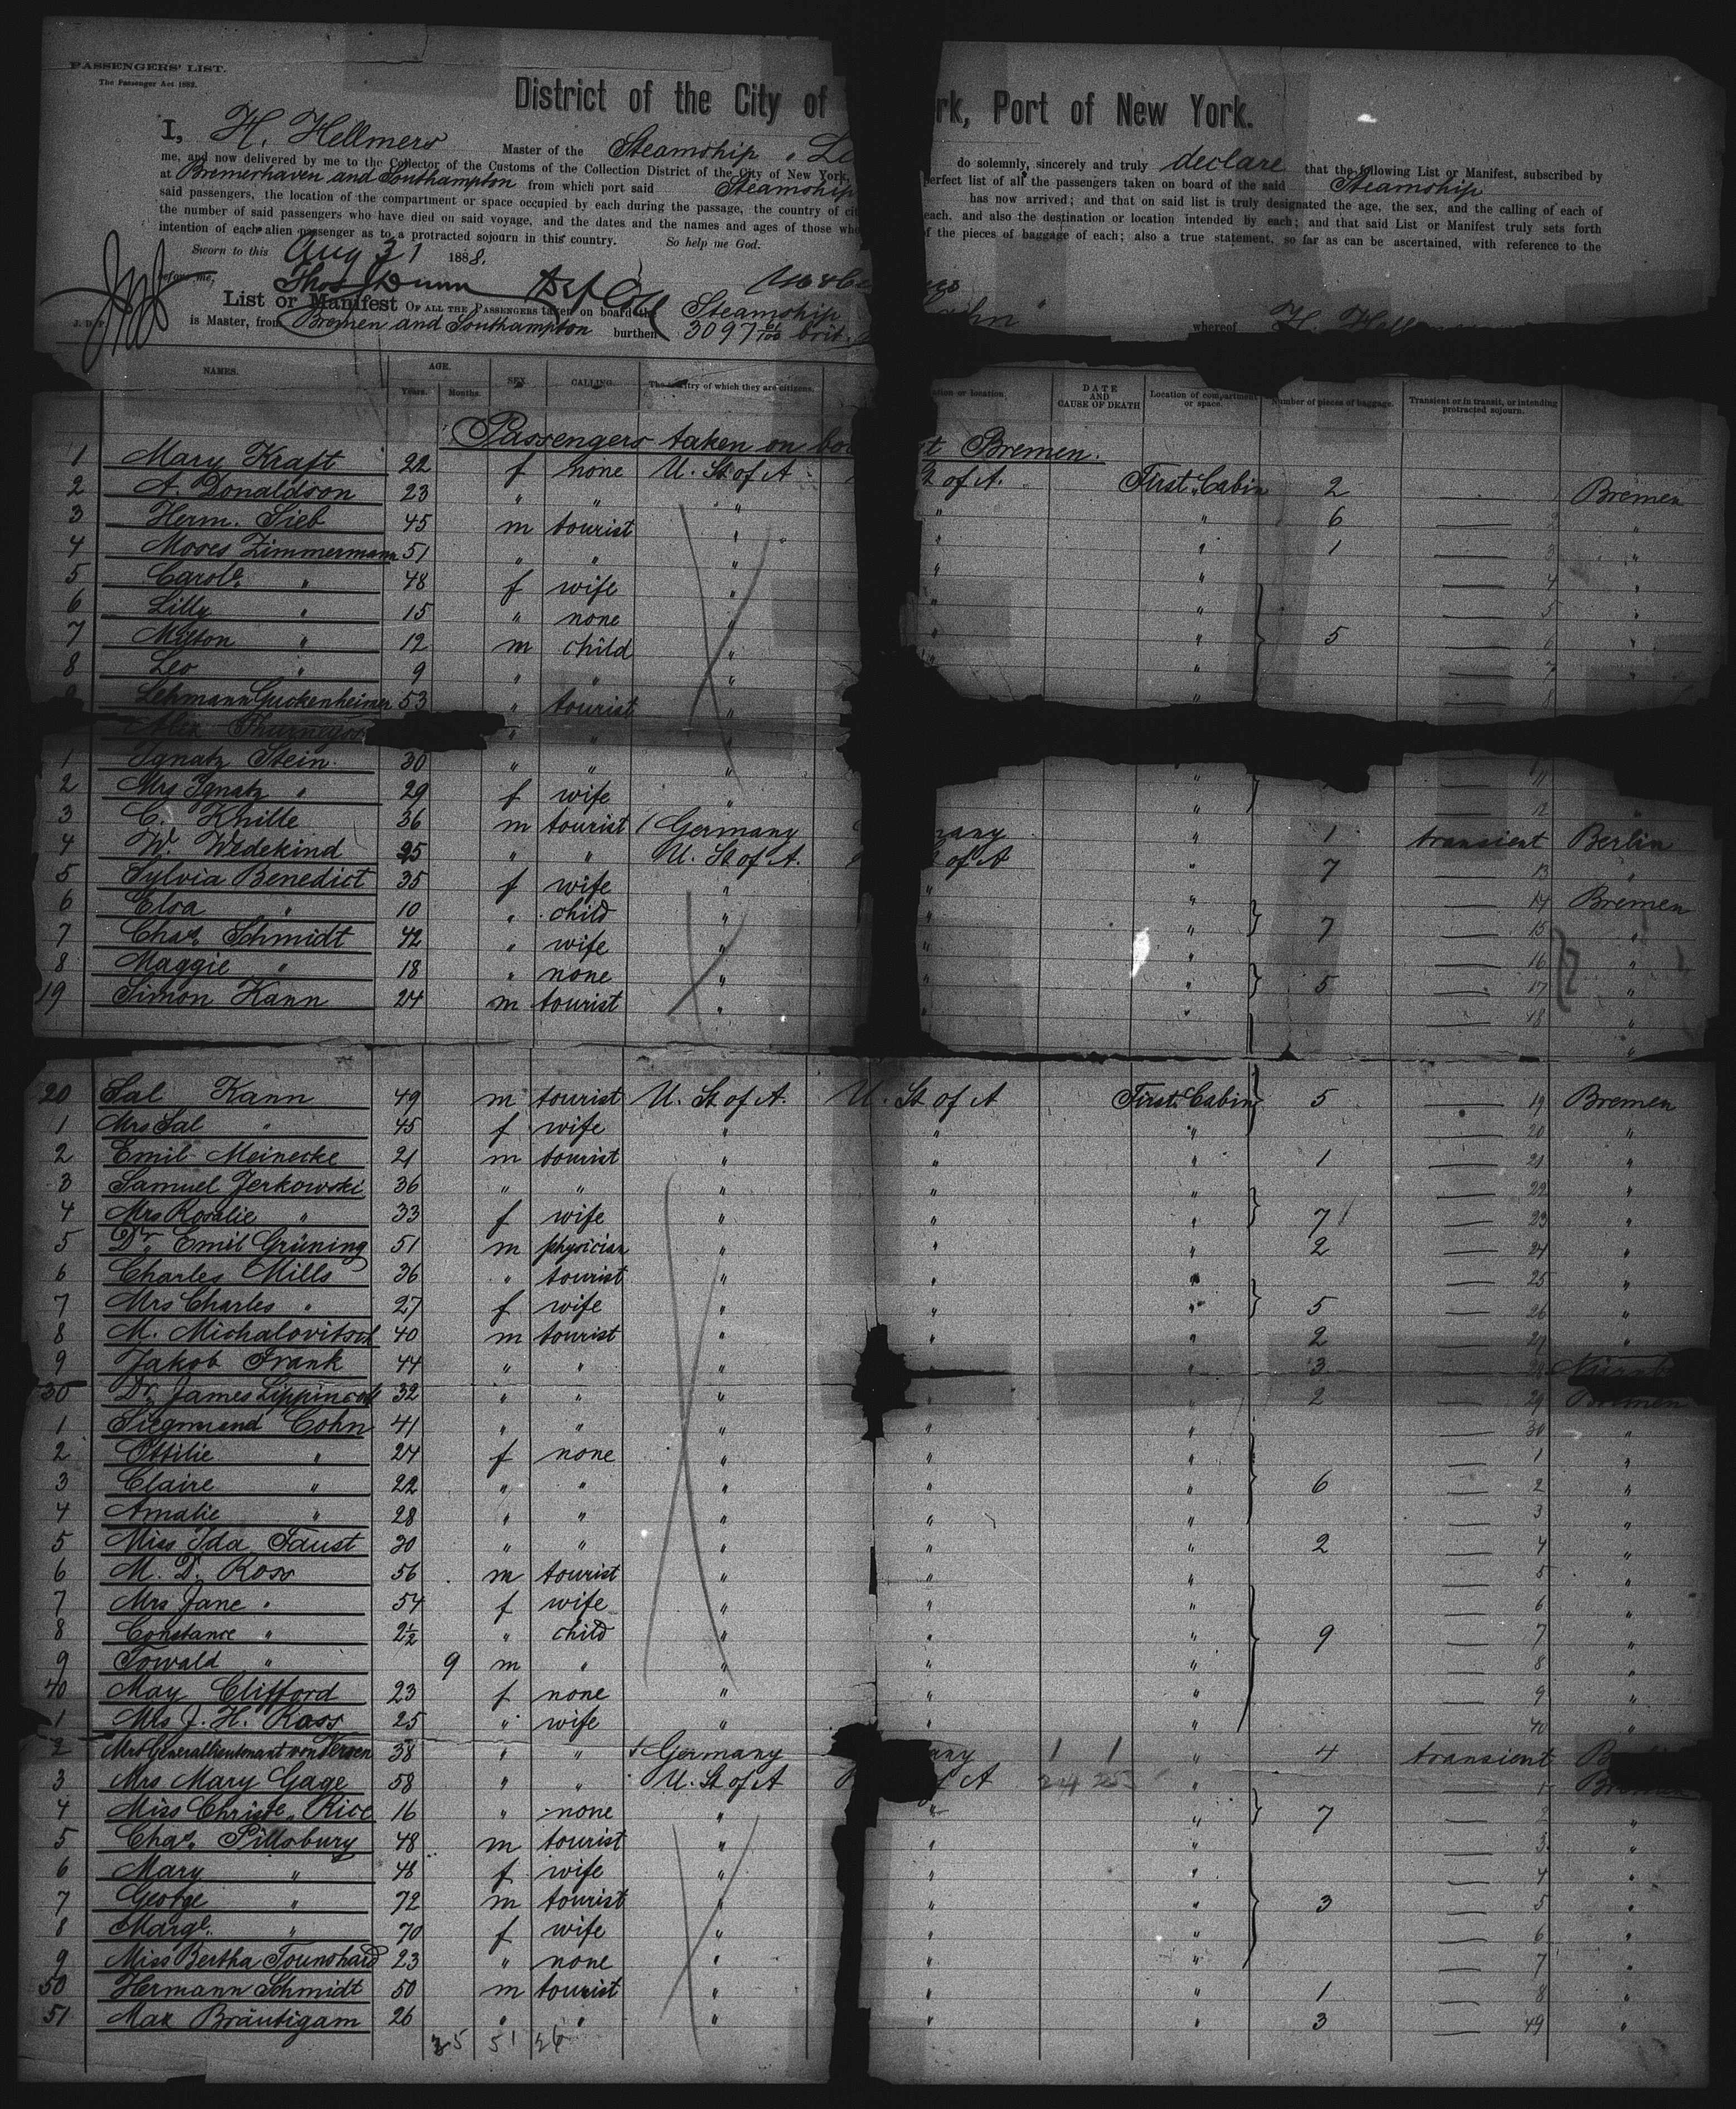 PASSENGERS' LIST.
The Passenger Act 1882.
District of the City of rk, Port of New York.
I, H. Hellmers Master of the Steamship do solemnly, sincerely and truly declare that the following List or Manifest, subscribed by
me, and now delivered by me to the Collector of the Customs of the Collection District of the City of New York, perfect list of all the passengers taken on board of the said Steamship
at Bremerhaven and Southampton from which port said Steamship has now arrived; and that on said list is truly designated the age, the sex, and the calling of each of
said passengers, the location of the compartment or space occupied by each during the passage, the country of each, and also the destination or location intended by each; and that said List or Manifest truly sets forth
the number of said passengers who have died on said voyage, and the dates and the names and ages of those who of the pieces of baggage of each; also a true statement, so far as can be ascertained, with reference to the
intention of each alien passenger as to a protracted sojourn in this country. So help me God.
Sworn to this Aug 31 1888.
before me,
List or Manifest OF ALL THE PASSENGERS taken on board the Steamship
J. D. P. is Master, from Bremen and Southampton burthen 3097 61/100 brit. whereof H.
NAMES. AGE. Years. Months. SEX. CALLING. The country of which they are citizens. location DATE AND CAUSE OF DEATH Location of compartment or space. Number of pieces of baggage. Transient or in transit, or intending protracted sojourn.
Passengers taken on at Bremen.
1 Mary Kraft 22 f none U. St of A of A. First Cabin 2 — 1 Bremen
2 A. Donaldson 23 " " " " " 6 — 2 "
3 Herm. Sieb 45 m tourist " " " 1 — 3 "
4 Moses Zimmermann 51 " " " " " — 4 "
5 Carole " 48 f wife " " " — 5 "
6 Lilly " 15 " none " " " 5 — 6 "
7 Milton " 12 m child " " " — 7 "
8 Leo " 9 " " " " " — 8
Lehmann Guckenheimer 53 " tourist "
Alex " " "
1 Ignatz Stein 30 " " " " 11
2 Mrs Ignatz " 29 f wife " " — 12 "
3 C. Knille 36 m tourist Germany many " 1 transient Berlin
4 W. Wedekind 25 " " U. St of A. of A " 7 — 13 "
5 Sylvia Benedict 35 f wife " " " — 14 Bremen
6 Elsa " 10 " child " " " 7 — 15 "
7 Chas. Schmidt 42 " wife " " " — 16 "
8 Maggie " 18 " none " " " 5 — 17 "
19 Simon Kann 24 m tourist " " " — 18 "
20 Sal Kann 49 m tourist U. St of A. U. St of A First Cabin 5 — 19 Bremen
1 Mrs Sal " 45 f wife " " " — 20 "
2 Emil Meinecke 21 m tourist " " " 1 — 21 "
3 Samuel Jerkowski 36 " " " " " — 22 "
4 Mrs Rosalie " 33 f wife " " " 7 — 23 "
5 Dr. Emil Grüning 51 m physician " " " 2 — 24 "
6 Charles Mills 36 " tourist " " " — 25 "
7 Mrs Charles " 27 f wife " " " 5 — 26 "
8 M. Michalovitsch 40 m tourist " " " 2 — 27 "
9 Jakob Frank 44 " " " " " 3 — 28
30 Dr. James Lippincott 32 " " " " " 2 — 29 Bremen
1 Siegmund Cohn 41 " " " " " — 30 "
2 Ottilie " 24 f none " " " — 1 "
3 Claire " 22 " " " " " 6 — 2 "
4 Amalie " 28 " " " " " — 3 "
5 Miss Ida Faust 30 " " " " " 2 — 4 "
6 M. D. Ross 56 m tourist " " " — 5 "
7 Mrs Jane " 54 f wife " " " — 6 "
8 Constance " 2½ " child " " " 9 — 7 "
9 Towald " 9 m " " " " — 8 "
40 May Clifford 23 f none " " " — 9 "
1 Mrs J. H. Kass 25 " wife " " " — 40 "
2 Mrs Generallieutenant von 38 " " Germany any 1 1 " 4 transient
3 Mrs Mary Gage 58 " " U. St of A of A 24 25 " — 1
4 Miss Christe. Rice 16 " none " " " 7 — 2 "
5 Chas. Pillsbury 48 m tourist " " " — 3 "
6 Mary " 48 f wife " " " — 4 "
7 George " 72 m tourist " " " 3 — 5 "
8 Margt. " 70 f wife " " " — 6 "
9 Miss Bertha 23 " none " " " — 7 "
50 Hermann Schmidt 50 m tourist " " " 1 — 8 "
51 Max Bräutigam 26 " " " " " 3 — 49 "
25 51 26